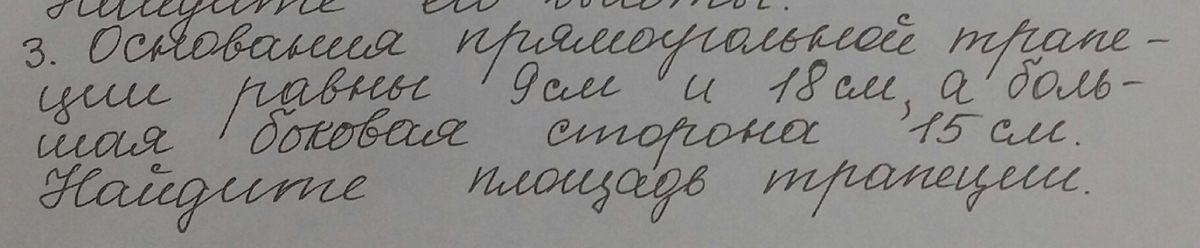 Найдите его высоты.
3. Основания прямоугольной трапе-
ции равны 9см и 18 см, а боль-
шая боковая сторона 15 см.
Найдите площадь трапеции.